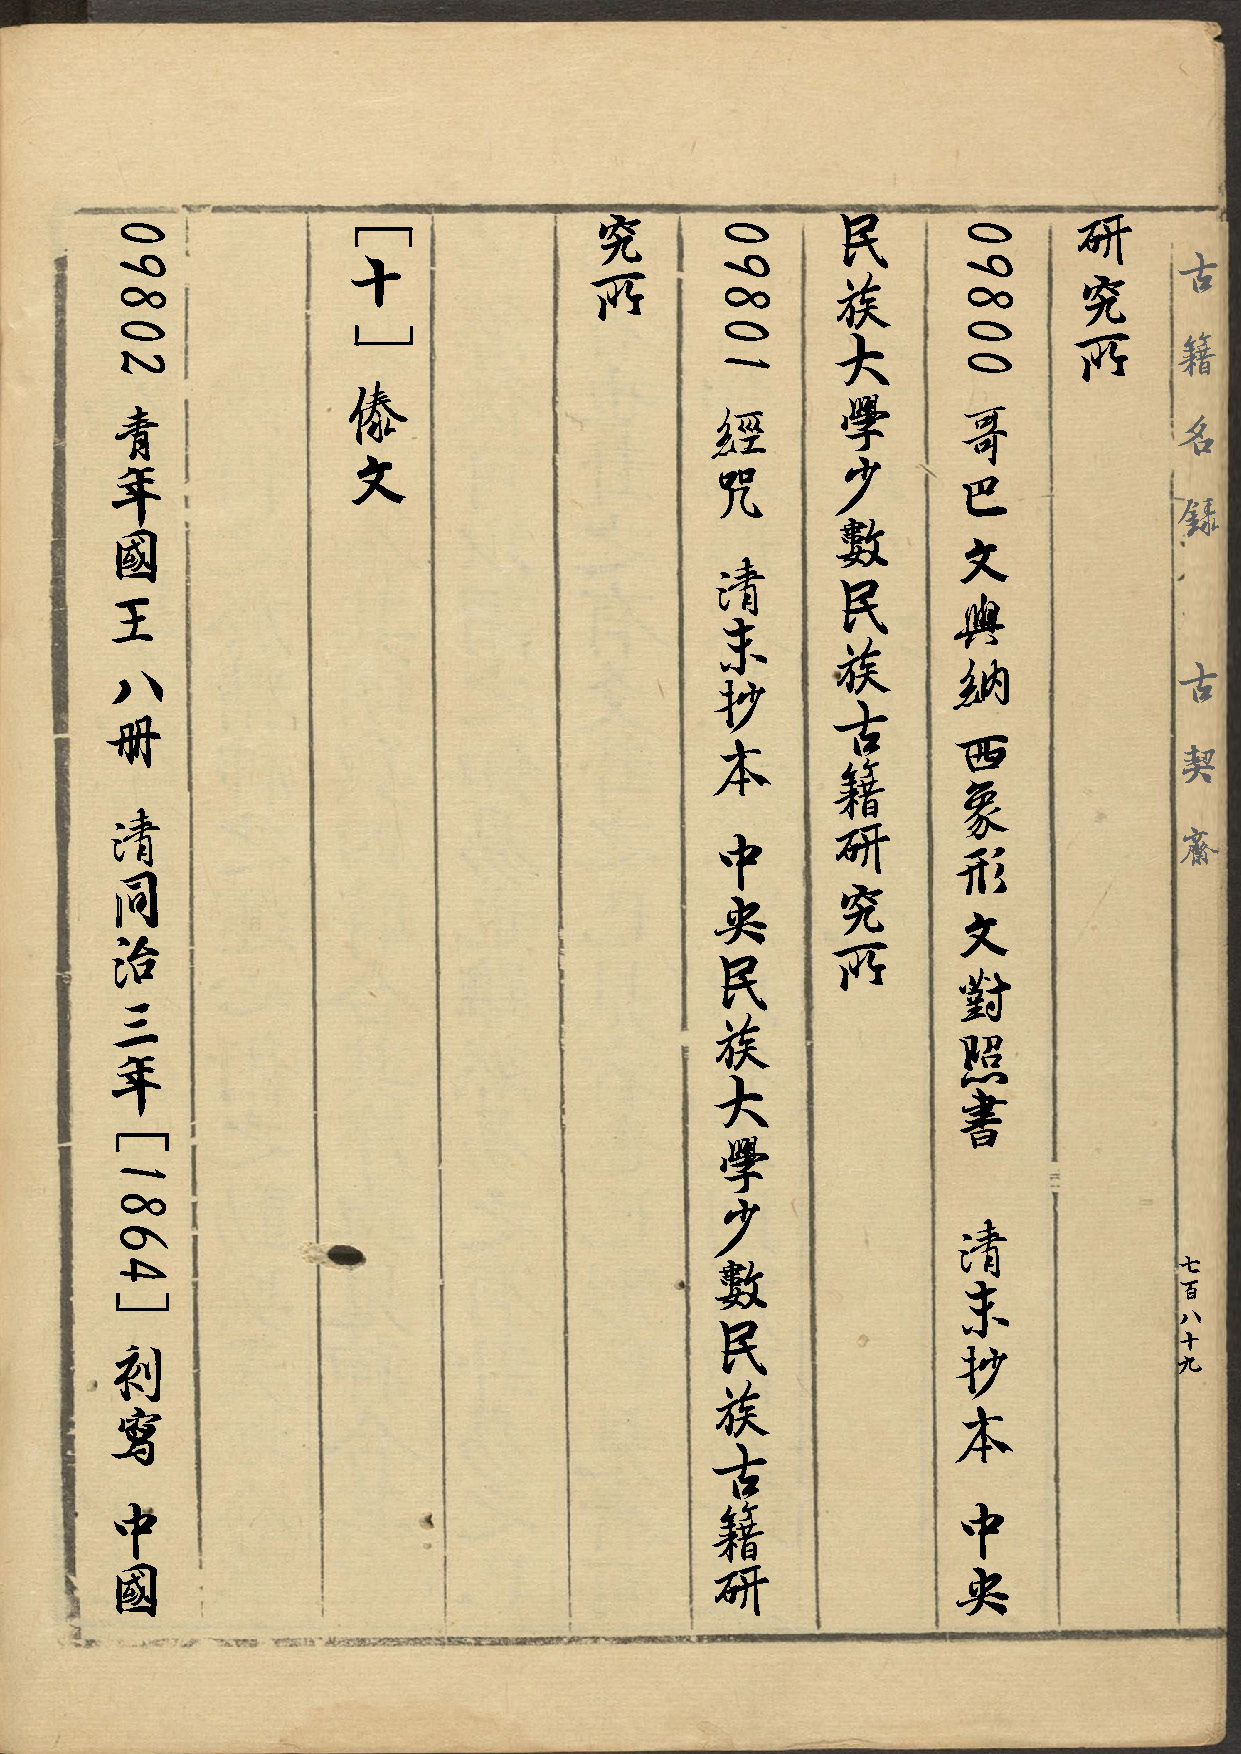 古籍名錄 古契齋
七百八十九
研究所
09800 哥巴文與納西象形文對照書 清末抄本 中央
民族大學少數民族古籍研究所
09801 經咒 清末抄本 中央民族大學少數民族古籍研
究所
[十] 傣文
09802 青年國王八册 清同治三年[1864] 刻寫 中國